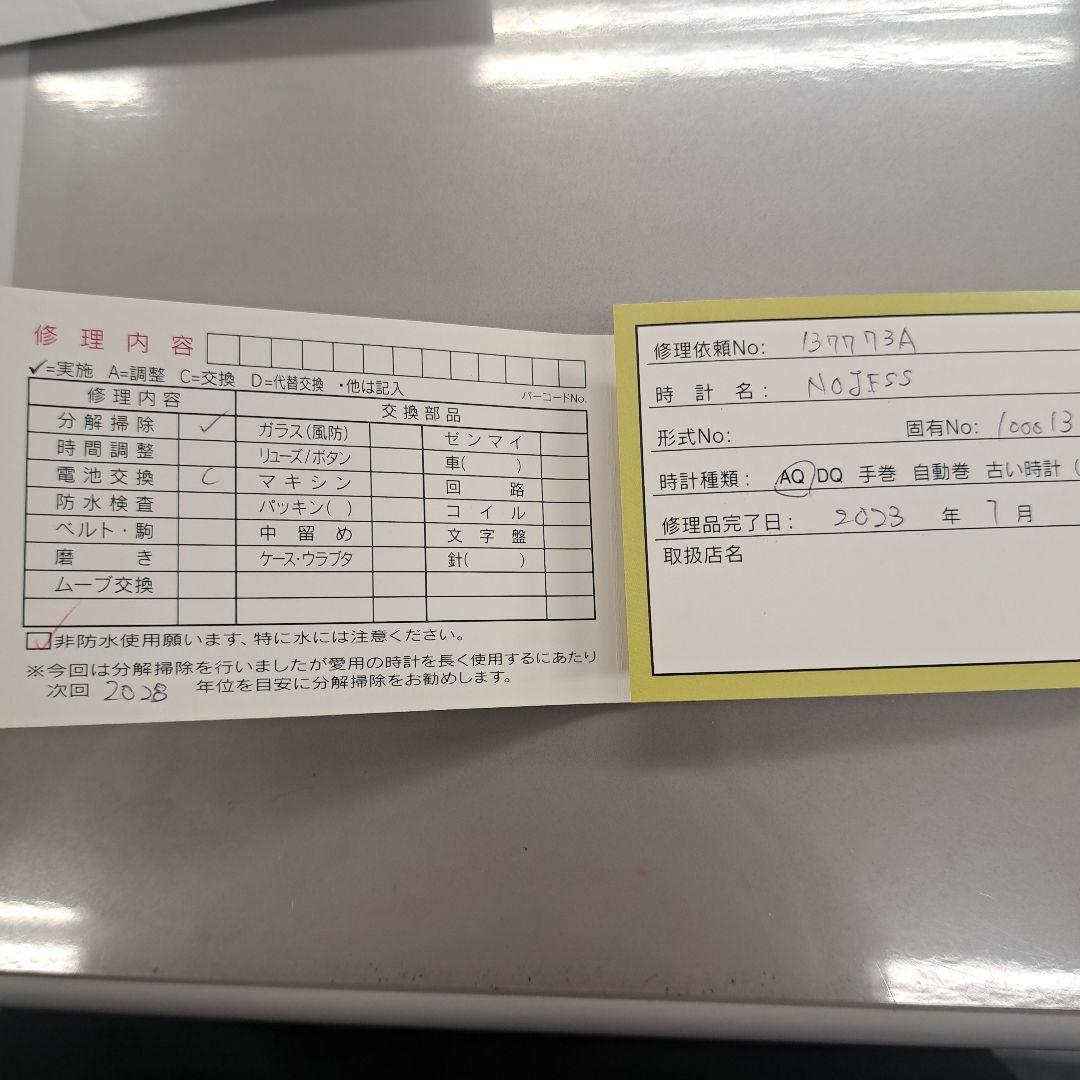 修理内容
バーコードNo.
✓=実施 A=調整 C=交換 D=代替交換 ・他は記入
修理内容 交換部品
分解掃除 ✓ ガラス(風防) ゼンマイ
時間調整 リューズ/ボタン 車( )
電池交換 C マキシン 回路
防水検査 パッキン( ) コイル
ベルト・駒 中留め 文字盤
磨き ケース・ウラブタ 針( )
ムーブ交換
☑非防水使用願います、特に水には注意ください。
※今回は分解掃除を行いましたが愛用の時計を長く使用するにあたり
次回 2028 年位を目安に分解掃除をお勧めします。
修理依頼No: 137773A
時計名: NOJESS
形式No: 固有No: 100013
時計種類: AQ DQ 手巻 自動巻 古い時計(
修理品完了日: 2023 年 7 月
取扱店名